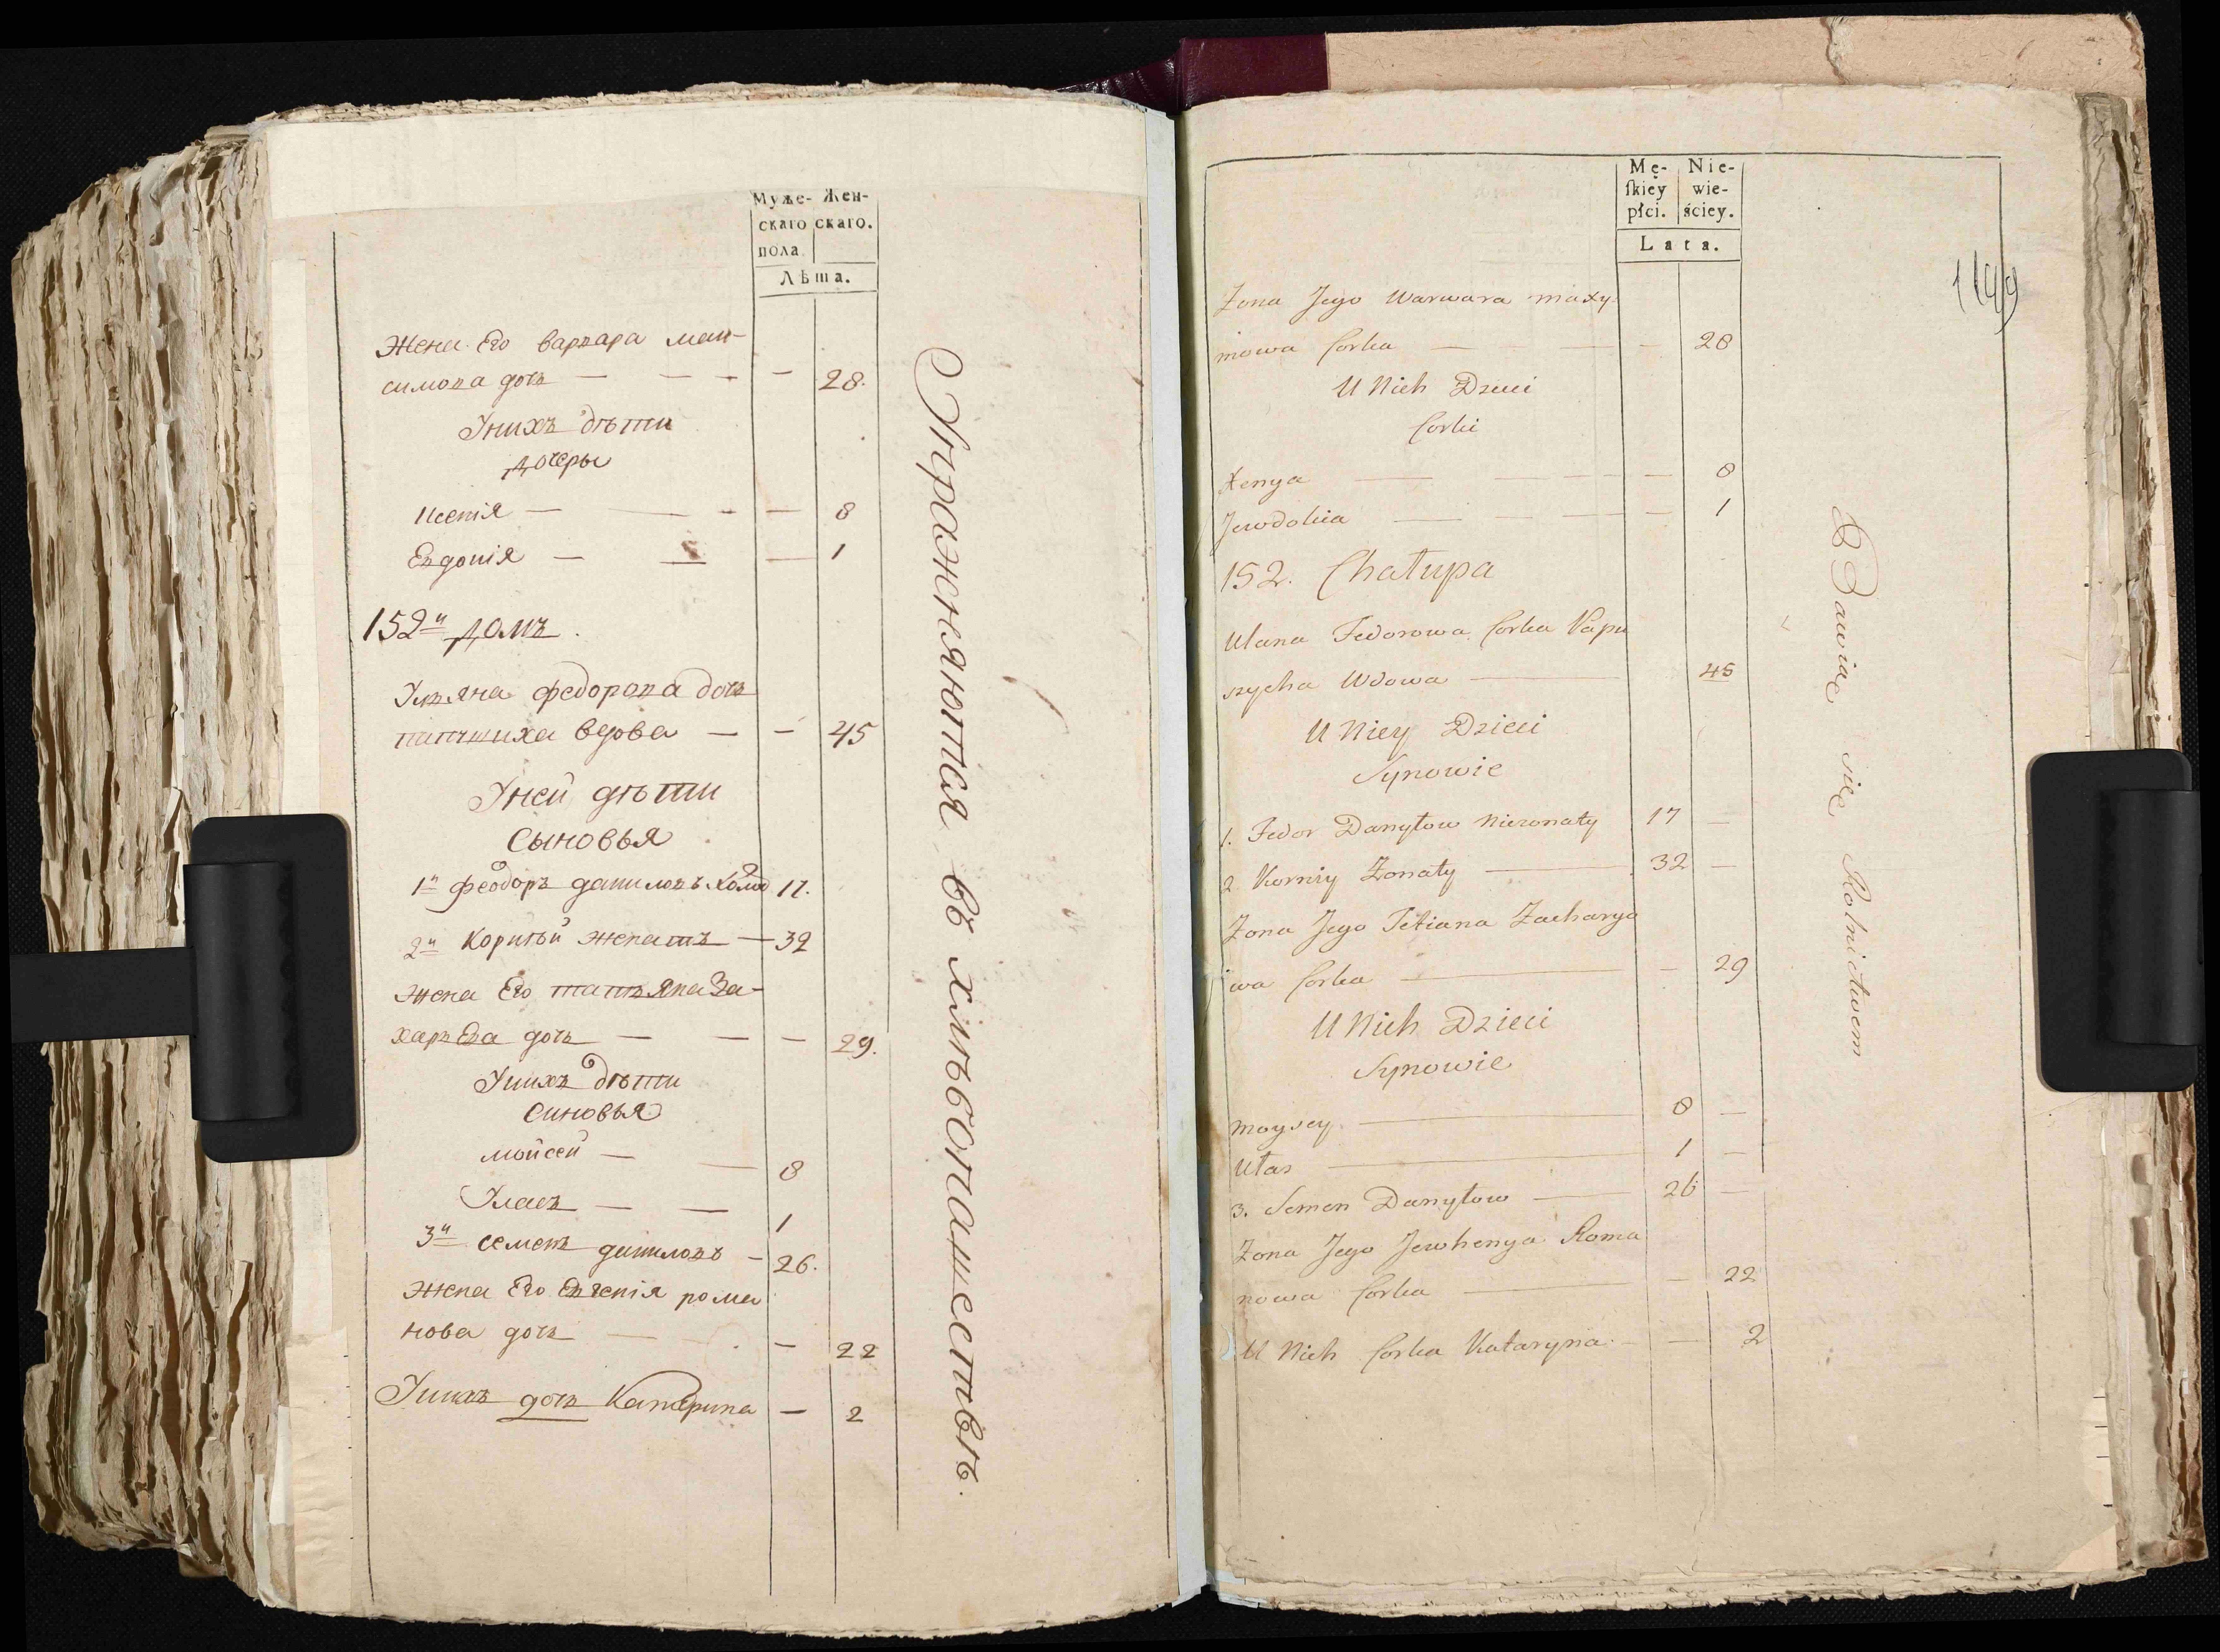 Муже- Жен-
скаго скаго.
пола
Лѣта.
Жена Его варвара мак-
симова дочь — — — — 28.
Унихъ дѣти
Дочеры
Ксенія — — — — 8
Евдокія — — — 1
152й Домъ.
Ульяна федорова дочь
вдова — — 45
Уней дѣти
Сыновья
1й феодоръ даниловъ холос 17.
2й Корнѣй женатъ — 32
жена Его татьяна За-
харьева дочь — — — 29.
Унихъ дѣти
синовья
мойсей — — 8
Улась — — 1
3й семенъ даниловъ — 26.
жена Его Евгенія рома
нова дочь — — — 22
Унихъ дочь Катерина — 2
Упражняются въ хлѣбопашествѣ.
Mę- Nie-
skiey wie-
płci. ściey.
Lata.
1149
Żona Jego Warwara maxy
mowa Corka — — — — 28
U Nich Dzieci
Corki
Xenya — — — — 8
Jewdokia — — — — 1
152. Chałupa
Ulana Fedorowa Corka Papu
szycha Wdowa — 45
U Niey Dzieci
Synowie
1. Fedor Danyłow Niezonaty 17 —
2 Korniy Żonaty — 32 —
Żona Jego Tetiana Zacharya
iwa Corka — — 29
U Nich Dzieci
Synowie
Moysey — 8 —
Ułas — 1 —
3. Semen Danyłow — 26 —
Żona Jego Jewhenya Roma
nowa Corka — — 22
U Nich Corka Kataryna — — 2
Bawią się Rolnictwem